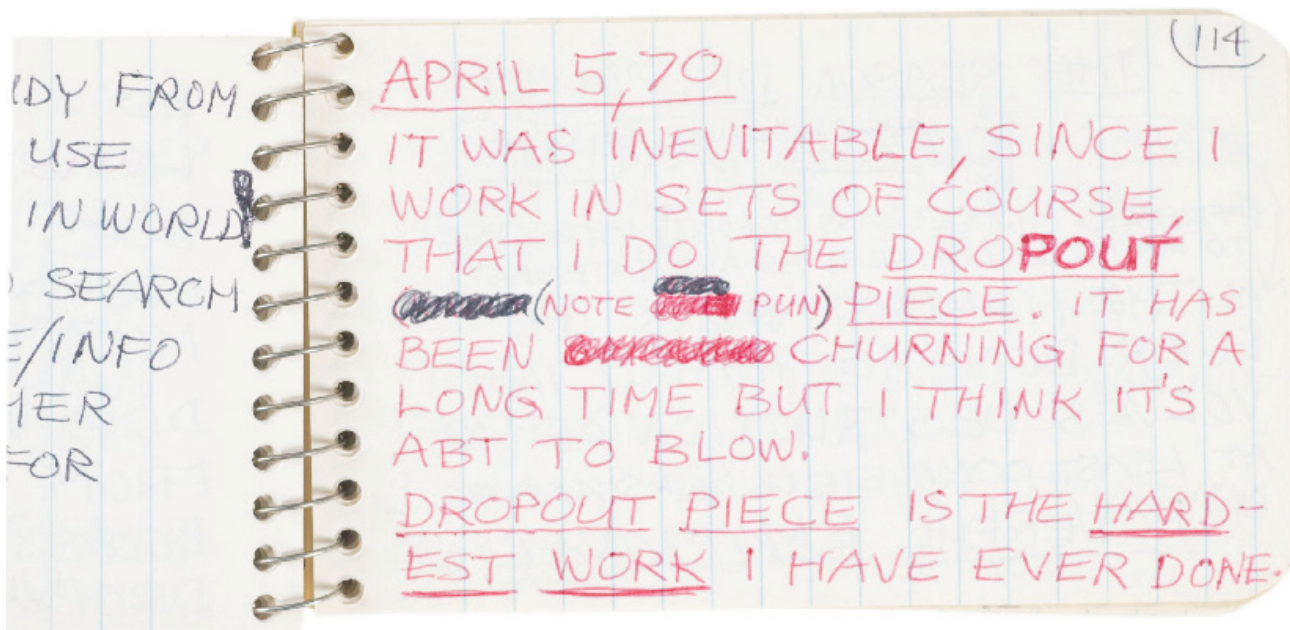 IDY FROM
USE
IN WORLD
SEARCH
E/INFO
FOR
114
APRIL 5, 70
IT WAS INEVITABLE, SINCE I
WORK IN SETS OF COURSE,
THAT I DO THE DROPOUT
(NOTE PUN) PIECE. IT HAS
BEEN CHURNING FOR A
LONG TIME BUT I THINK IT'S
ABT TO BLOW.
DROPOUT PIECE IS THE HARD-
EST WORK I HAVE EVER DONE.